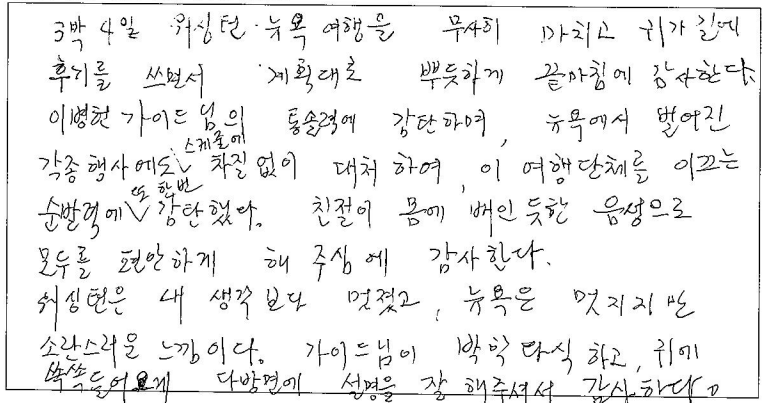 3박 4일 워싱턴·뉴욕 여행을 무사히 마치고 귀가 길에
후기를 쓰면서 계획대로 뿌듯하게 끝마침에 감사한다.
이병헌 가이드님의 통솔력에 감탄하며, 뉴욕에서 벌어진
각종 행사에도 스케줄에 차질 없이 대처하여, 이 여행단체를 이끄는
순발력에 또 한번 감탄했다. 친절이 몸에 배인 듯한 음성으로
모두를 편안하게 해 주심에 감사한다.
워싱턴은 내 생각보다 멋졌고, 뉴욕은 멋지지만
소란스러운 느낌이다. 가이드님이 박학다식 하고, 귀에
쏙쏙 들어오게 다방면에 설명을 잘 해주셔서 감사하다.